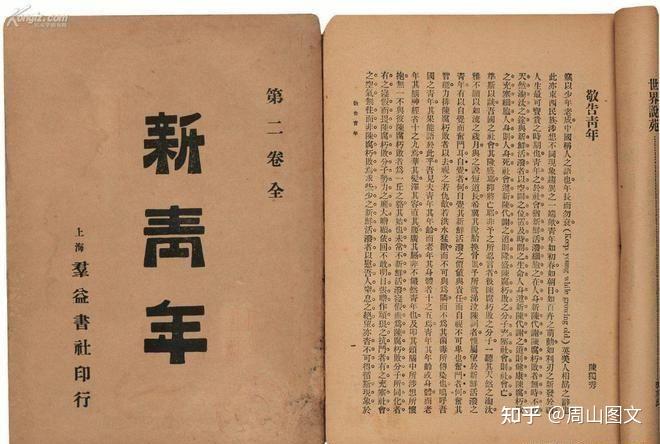 第二卷全
新青年
上海 羣益書社印行
世界說苑
敬告青年
陳獨秀
竊以少年老成中國稱人之語也年長而勿衰(Keep young while growing old)英美人相勗之辭也
此亦東西民族涉想不同現象趨異之一端歟青年如初春如朝日如百卉之萌動如利刃之新發於硎
人生最可寶貴之時期也青年之於社會猶新鮮活潑細胞之在人身新陳代謝陳腐朽敗者無時不在
天然淘汰之途與新鮮活潑者以空間之位置及時間之生命人身遵新陳代謝之道則健康陳腐朽敗
之細胞充塞人身則人身死社會遵新陳代謝之道則隆盛陳腐朽敗之分子充塞社會則社會亡
準斯以談吾國之社會其隆盛耶抑將亡耶非予之所忍言者彼陳腐朽敗之分子一聽其天然之淘汰
雅不願以如流之歲月與之說短道長希冀其脫胎換骨也予所欲涕泣陳詞者惟屬望於新鮮活潑之
青年有以自覺而奮鬥耳自覺者何自覺其新鮮活潑之價值與責任而自視不可卑也奮鬥者何奮其
智能力排陳腐朽敗者以去視之若仇敵若洪水猛獸而不可與為隣而不為其菌毒所傳染也嗚呼吾
國之青年其果能語於此乎吾見夫青年其年齡而老年其身體者十之五焉青年其年齡或身體而老
年其腦神經者十之九焉華其髮澤其容直其腰廣其膈非不儼然青年也及叩其頭腦中所涉想所懷
抱無一不與彼陳腐朽敗者為一丘之貉其始也未嘗不新鮮活潑寖假而為陳腐朽敗分子所同化者
有之寖假而畏陳腐朽敗分子勢力之龐大瞻顧依回不敢明目張膽作頑狠之抗鬥者有之充塞社會
之空氣無往而非陳腐朽敗焉求些少之新鮮活潑者以慰吾人窒息之絕望亦杳不可得循斯現象於
敬告青年
一
知乎 @周山图文